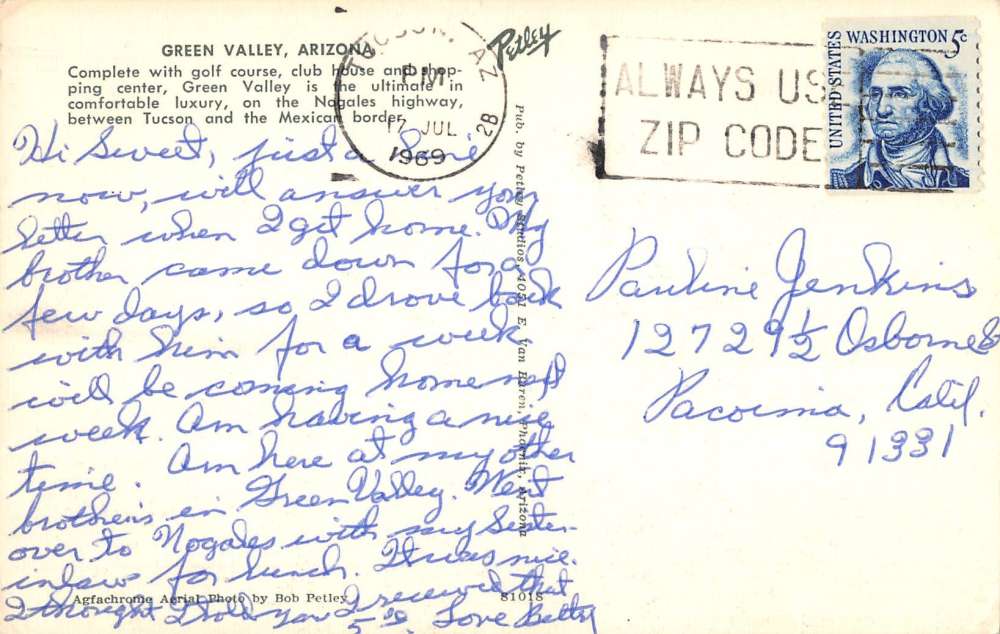 GREEN VALLEY, ARIZONA
Complete with golf course, club house and shop-
ping center, Green Valley is the ultimate in
comfortable luxury, on the Nogales highway,
between Tucson and the Mexican border.
Hi Sweet, just a line
now, will answer your
letter when I get home. My
brother came down for a
few days, so I drove back
with him for a week
will be coming home next
week. Am having a nice
time. Am here at my other
brother's in Green Valley. Went
over to Nogales with my Sister-
inlaw for lunch. It was nice.
I thought I told you I received that
5.00 Love Betty
Agfachrome Aerial Photo by Bob Petley
81018
Petley
Pub. by Petley Studios, 4051 E. Van Buren, Phoenix, Arizona
TUCSON, AZ
PM
17 JUL
1969
2B
ALWAYS USE
ZIP CODE
UNITED STATES
WASHINGTON 5c
Pauline Jenkins
12729 1/2 Osborne
Pacoima, Calif.
91331